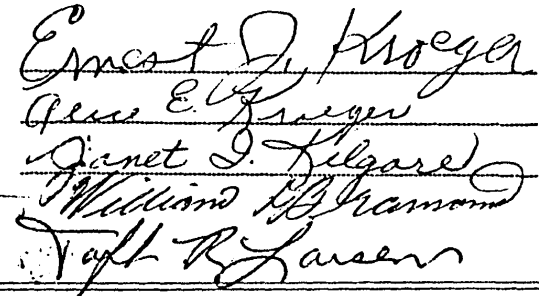 Ernest J. Kroeger
Alice E. Kroeger
Janet I. Kilgore
William
Taft R. Larsen